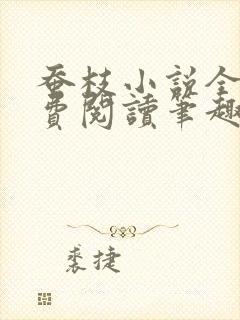 蚕枝小说全
費閱讀筆趣
裘捷